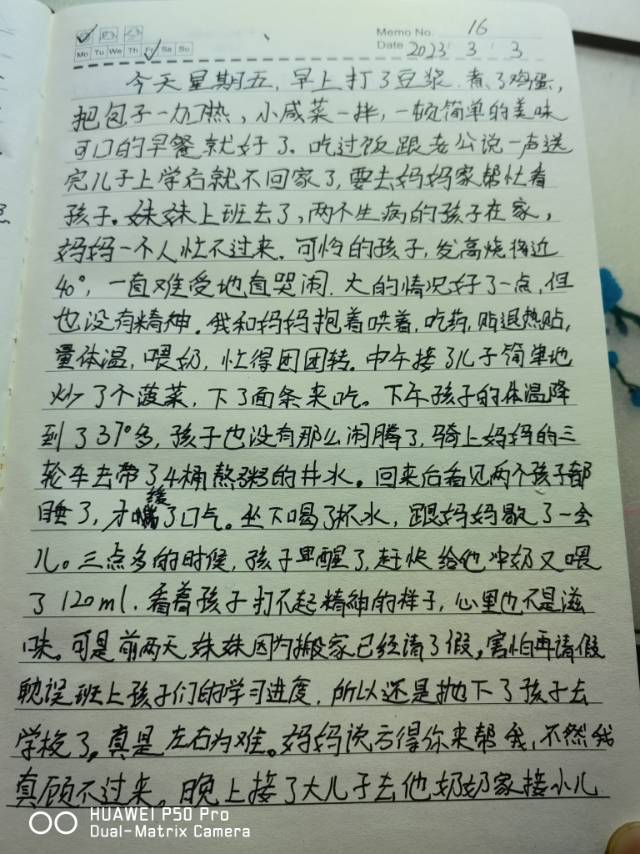 Memo No. 16
Mo Tu We Th Fr Sa Su
Date 2023 / 3 / 3
今天星期五,早上打了豆浆,煮了鸡蛋,
把包子一加热,小咸菜一拌,一顿简单的美味
可口的早餐就好了。吃过饭跟老公说一声送
完儿子上学后就不回家了,要去妈妈家帮忙看
孩子。妹妹上班去了,两个生病的孩子在家,
妈妈一个人忙不过来。可怜的孩子,发高烧将近
40°,一直难受地直哭闹。大的情况好了一点,但
也没有精神。我和妈妈抱着哄着,吃药,贴退热贴,
量体温,喂奶,忙得团团转。中午接了儿子简单地
炒了个菠菜,下了面条来吃。下午孩子的体温降
到了37°多,孩子也没有那么闹腾了,骑上妈妈的三
轮车去带了4桶熬粥的井水。回来后看见两个孩子都
睡了,才缓了口气。坐下喝了杯水,跟妈妈歇了一会
儿。三点多的时候,孩子里醒了,赶快给他冲奶又喂
了120ml。看着孩子打不起精神的样子,心里也不是滋
味。可是前两天妹妹因为搬家已经请了假,害怕再请假
耽误班上孩子们的学习进度,所以还是抛下了孩子去
学校了,真是左右为难。妈妈说亏得你来帮我,不然我
真顾不过来。晚上接了大儿子去他奶奶家接小儿
HUAWEI P50 Pro
Dual-Matrix Camera